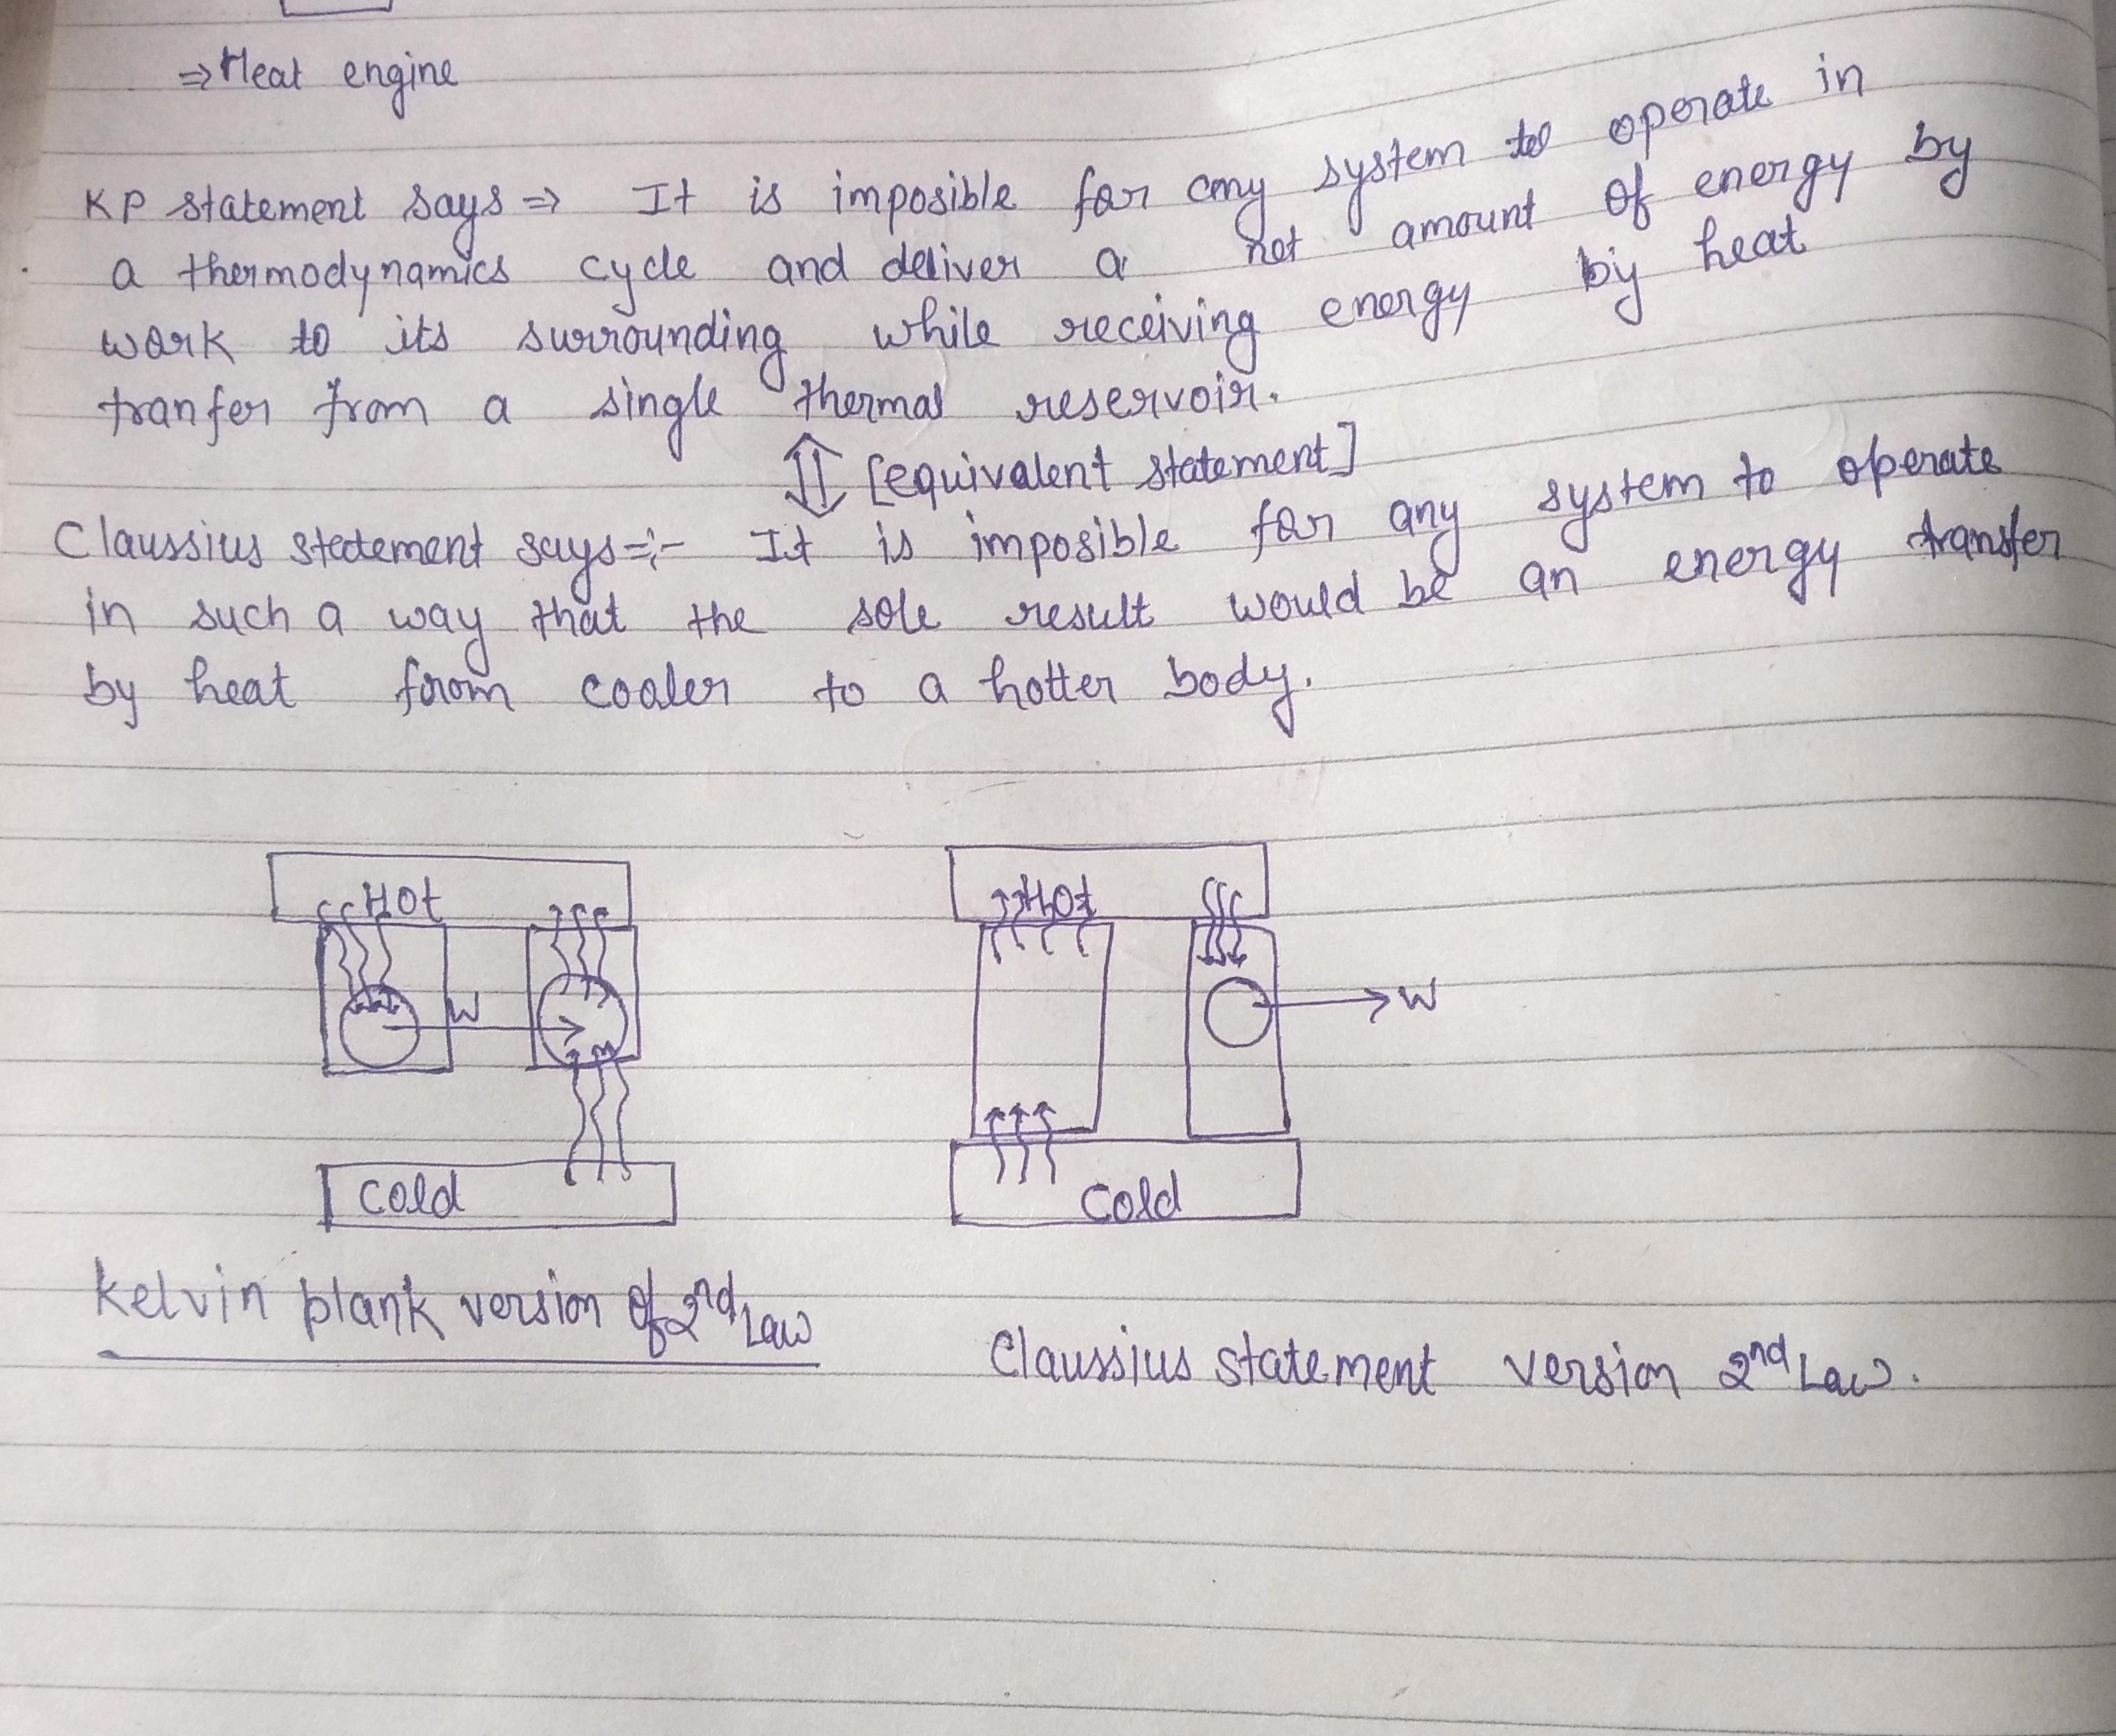 ⇒ Heat engine
KP statement says ⇒ It is imposible for any system to operate in
a thermodynamics cycle and deliver a net amount of energy by
work to its surrounding while receiving energy by heat
tranfer from a single thermal reservoir.
⇕ [equivalent statement]
Claussius statement says =:- It is imposible for any system to operate
in such a way that the sole result would be an energy transfer
by heat from cooler to a hotter body.
Hot
W
Cold
Hot
W
Cold
Kelvin plank version of 2nd Law
Claussius statement version 2nd Law.